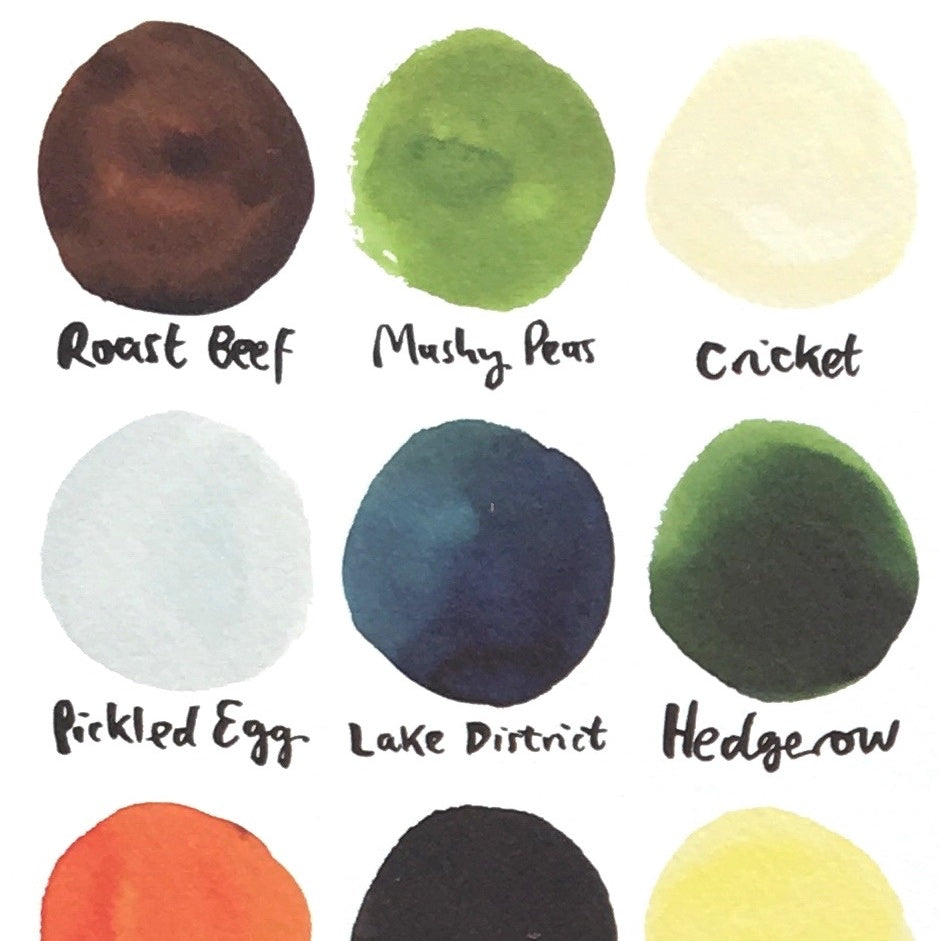 Roast Beef
Mushy Peas
Cricket
Pickled Egg
Lake District
Hedgerow